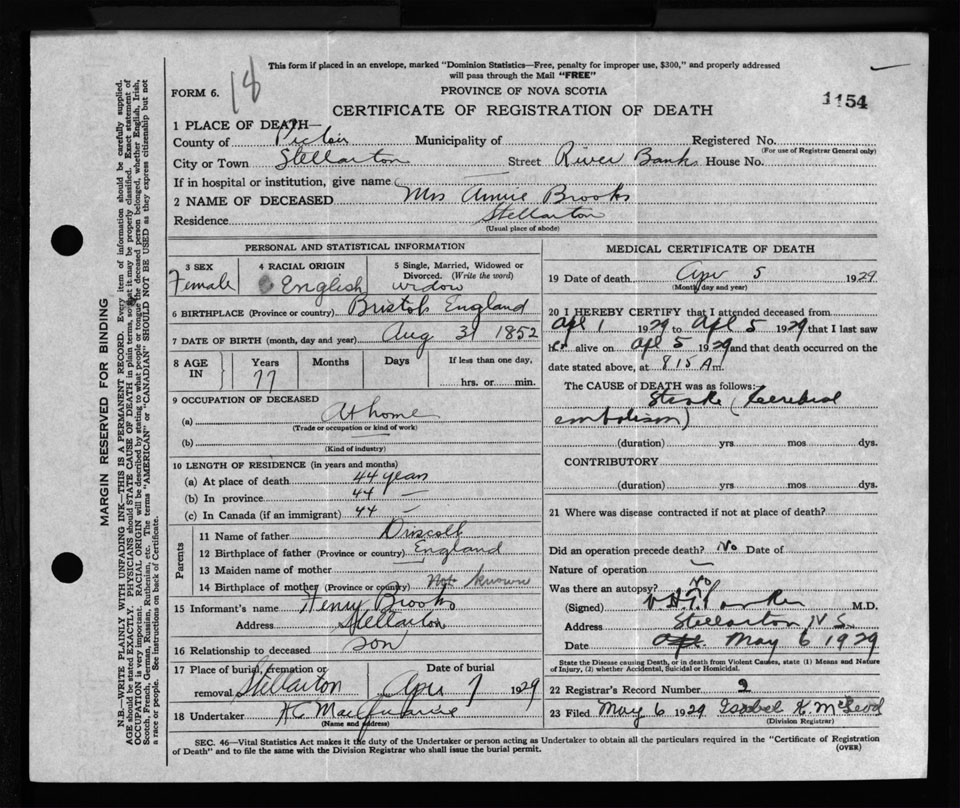 This form if placed in an envelope, marked "Dominion Statistics—Free, penalty for improper use, $300," and properly addressed
will pass through the Mail "FREE"
18
FORM 6.
PROVINCE OF NOVA SCOTIA
CERTIFICATE OF REGISTRATION OF DEATH
1154
1 PLACE OF DEATH—
County of Pictou Municipality of Registered No.
(For use of Registrar General only)
City or Town Stellarton Street River Bank House No.
If in hospital or institution, give name
2 NAME OF DECEASED Mrs Annie Brooks
Residence Stellarton
(Usual place of abode)
PERSONAL AND STATISTICAL INFORMATION
3 SEX Female
4 RACIAL ORIGIN English
5 Single, Married, Widowed or Divorced. (Write the word) widow
6 BIRTHPLACE (Province or country) Bristol England
7 DATE OF BIRTH (month, day and year) Aug 31 1852
8 AGE IN Years 77 Months Days If less than one day,
hrs. or min.
9 OCCUPATION OF DECEASED
(a) At home
(Trade or occupation or kind of work)
(b)
(Kind of industry)
10 LENGTH OF RESIDENCE (in years and months)
(a) At place of death 44 years
(b) In province 44 —
(c) In Canada (if an immigrant) 44 —
Parents
11 Name of father Driscoll
12 Birthplace of father (Province or country) England
13 Maiden name of mother
14 Birthplace of mother (Province or country) Not known
15 Informant's name Henry Brooks
Address Stellarton
16 Relationship to deceased son
17 Place of burial, cremation or removal Stellarton
Date of burial Apr 7 1929
18 Undertaker
(Name and address)
MEDICAL CERTIFICATE OF DEATH
19 Date of death Apr 5 1929
(Month, day and year)
20 I HEREBY CERTIFY that I attended deceased from
Apl 1 1929 to Apl 5 1929 that I last saw
her alive on Apl 5 1929 and that death occurred on the
date stated above, at 815 A m.
The CAUSE of DEATH was as follows:
Stroke (Cerebral
embolism)
(duration) yrs mos dys.
CONTRIBUTORY
(duration) yrs mos dys.
21 Where was disease contracted if not at place of death?
Did an operation precede death? No Date of
Nature of operation —
Was there an autopsy? No
(Signed) M.D.
Address Stellarton N.S.
Date Apl. May 6 1929
State the Disease causing Death, or in death from Violent Causes, state (1) Means and Nature
of Injury, (2) whether Accidental, Suicidal or Homicidal.
22 Registrar's Record Number 2
23 Filed May 6 1929 Isabel K. McLeod
(Division Registrar)
SEC. 46—Vital Statistics Act makes it the duty of the Undertaker or person acting as Undertaker to obtain all the particulars required in the "Certificate of Registration
of Death" and to file the same with the Division Registrar who shall issue the burial permit.
(OVER)
MARGIN RESERVED FOR BINDING
N.B.—WRITE PLAINLY WITH UNFADING INK—THIS IS A PERMANENT RECORD. Every item of information should be carefully supplied.
AGE should be stated EXACTLY. PHYSICIANS should STATE CAUSE OF DEATH in plain terms, so that it may be properly classified. Exact statement of
OCCUPATION is very important. RACIAL ORIGIN will be described by stating to what people or tongue the deceased person belonged, whether English, Irish,
Scotch, French, German, Russian, Ruthenian, etc. The terms "AMERICAN" or "CANADIAN" SHOULD NOT BE USED as they express citizenship but not
a race or people. See instructions on back of Certificate.